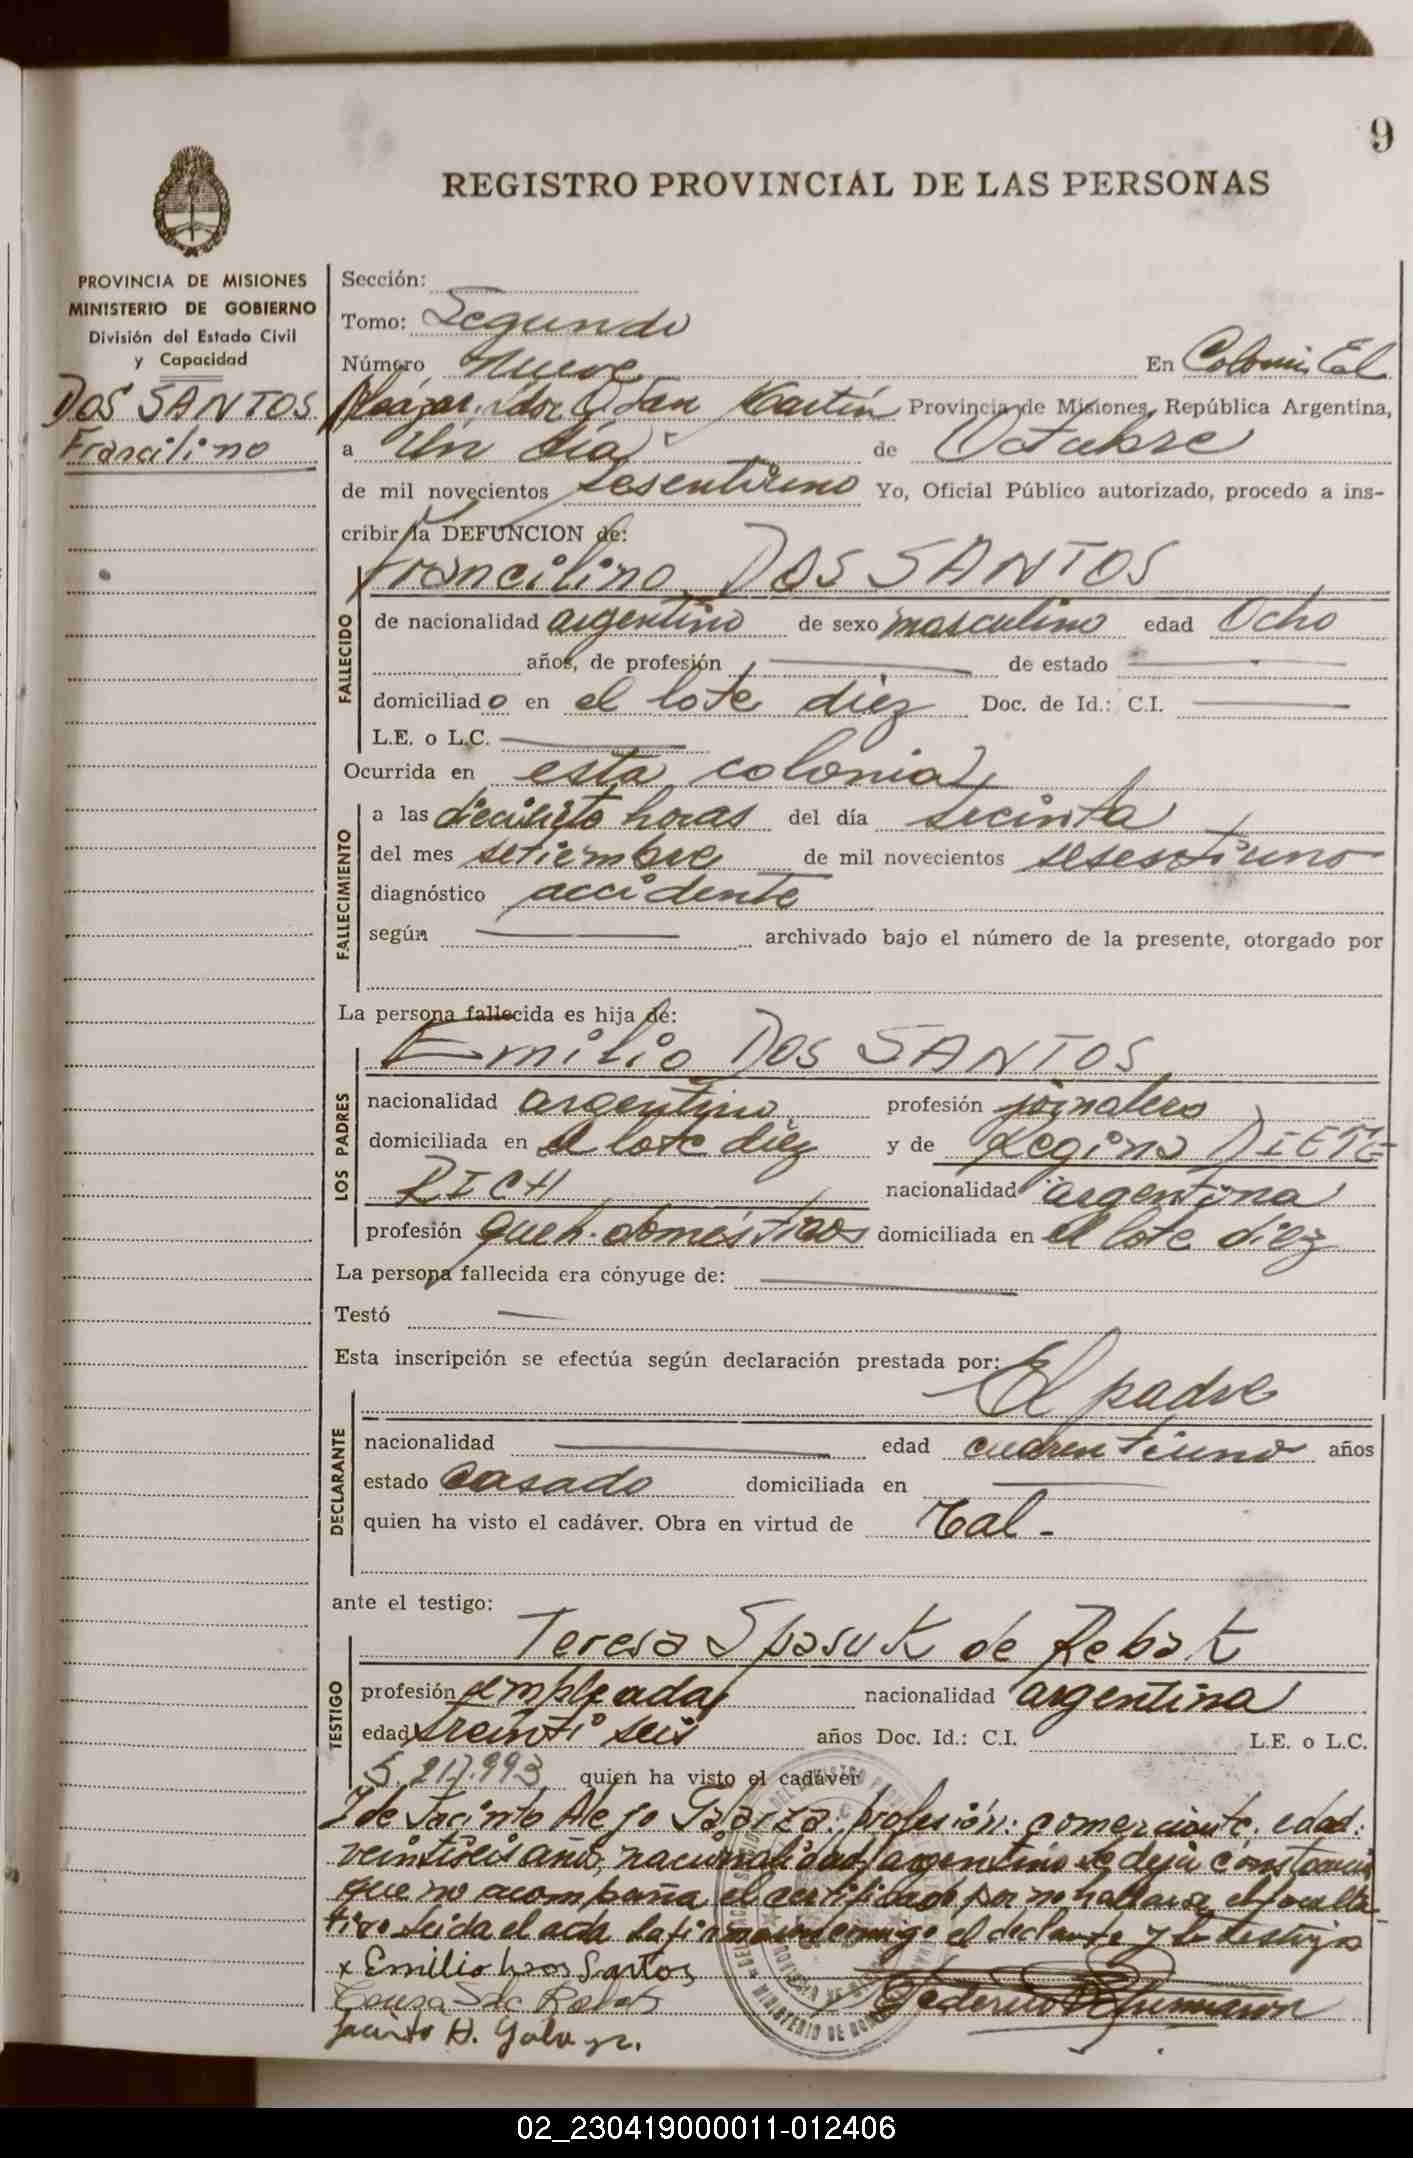 9
REGISTRO PROVINCIAL DE LAS PERSONAS
PROVINCIA DE MISIONES
MINISTERIO DE GOBIERNO
División del Estado Civil
y Capacidad
DOS SANTOS
Francilino
Sección:
Tomo: Segundo
Número nueve En Colonia El
Alcázar San Martín Provincia de Misiones, República Argentina,
a un día de Octubre
de mil novecientos sesentiuno Yo, Oficial Público autorizado, procedo a ins-
cribir la DEFUNCION de:
Francilino DOS SANTOS
FALLECIDO
de nacionalidad argentino de sexo masculino edad Ocho
años, de profesión de estado
domiciliado en el lote diez Doc. de Id.: C.I.
L.E. o L.C.
Ocurrida en esta colonia
FALLECIMIENTO
a las horas del día treinta
del mes setiembre de mil novecientos sesentiuno
diagnóstico accidente
según archivado bajo el número de la presente, otorgado por
La persona fallecida es hija de:
Emilio DOS SANTOS
LOS PADRES
nacionalidad argentino profesión jornalero
domiciliada en el lote diez y de Regina DIETE-
RICH nacionalidad argentina
profesión queh. domésticos domiciliada en el lote diez
La persona fallecida era cónyuge de:
Testó
Esta inscripción se efectúa según declaración prestada por:
El padre
DECLARANTE
nacionalidad edad cuarentiuno años
estado casado domiciliada en
quien ha visto el cadáver. Obra en virtud de Tal-
ante el testigo:
Teresa Spasuk de Rebak
TESTIGO
profesión empleada nacionalidad argentina
edad treinti seis años Doc. Id.: C.I. L.E. o L.C.
quien ha visto el cadáver
Y de Jacinto Alejo profesión: comerciante. edad:
veintiseis años, nacionalidad argentino se deja constancia
que no acompaña el certificado por no hallarse el faculta-
tivo leida el acta la firman conmigo el declarante y los testigos
x Emilio Dos Santos
Teresa S de Rebak
Jacinto A.
Federico
02_230419000011-012406